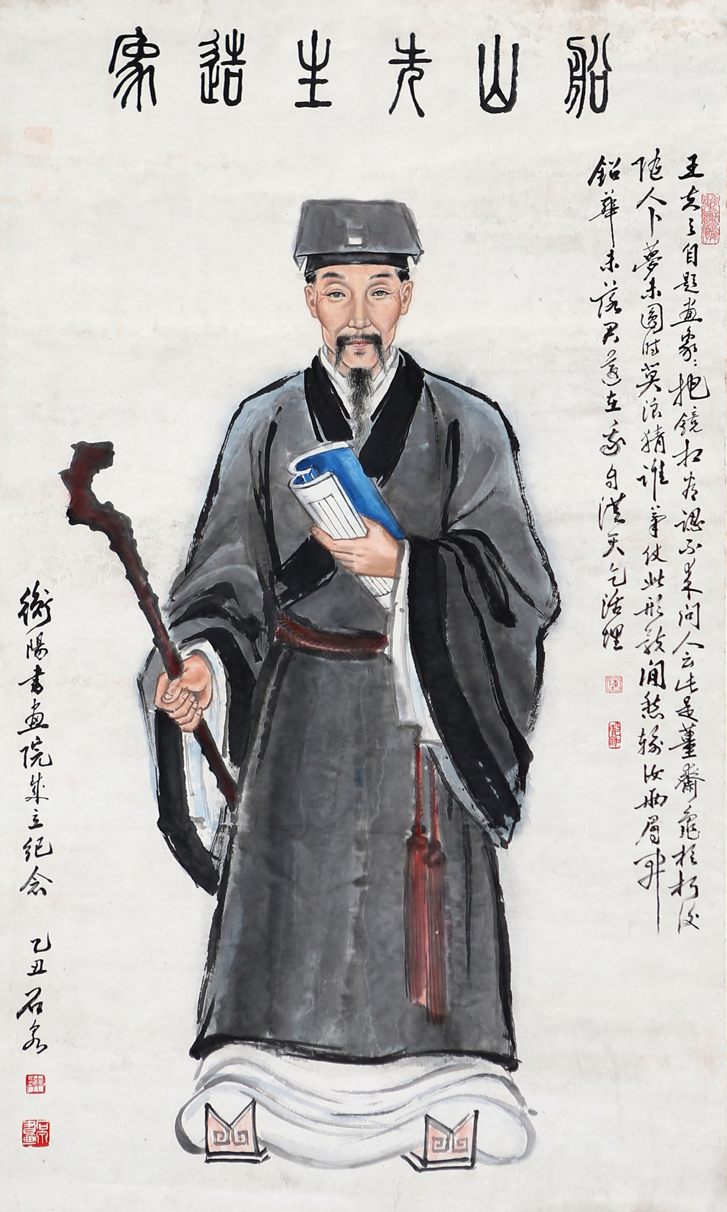 船山先生造象
王夫之自題畫象：把鏡相看認不来問人云此是薑齋龜於朽後
隨人卜夢未圓時莫浪猜誰筆仗此形骸閒愁輸汝兩眉開
鉛華未落君還在我自從天乞活埋
衡陽書畫院成立紀念 乙丑 石